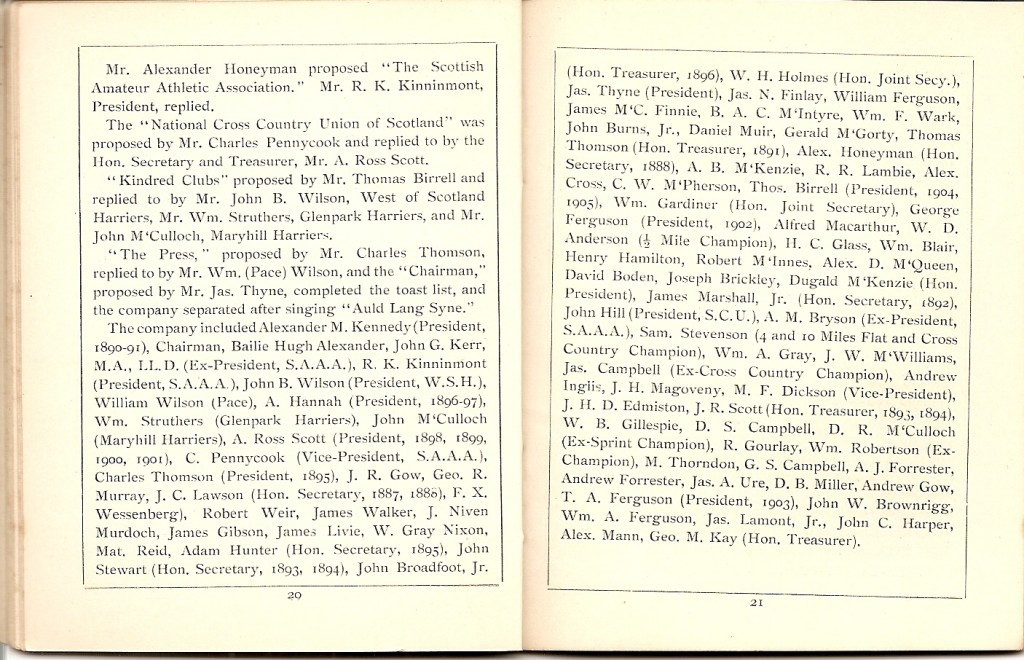 Mr. Alexander Honeyman proposed “The Scottish
Amateur Athletic Association.” Mr. R. K. Kinninmont,
President, replied.
The “National Cross Country Union of Scotland” was
proposed by Mr. Charles Pennycook and replied to by the
Hon. Secretary and Treasurer, Mr. A. Ross Scott.
“Kindred Clubs” proposed by Mr. Thomas Birrell and
replied to by Mr. John B. Wilson, West of Scotland
Harriers, Mr. Wm. Struthers, Glenpark Harriers, and Mr.
John M‘Culloch, Maryhill Harriers.
“The Press,” proposed by Mr. Charles Thomson,
replied to by Mr. Wm. (Pace) Wilson, and the “Chairman,”
proposed by Mr. Jas. Thyne, completed the toast list, and
the company separated after singing “Auld Lang Syne.”
The company included Alexander M. Kennedy (President,
1890-91), Chairman, Bailie Hugh Alexander, John G. Kerr,
M.A., LL.D. (Ex-President, S.A.A.A.), R. K. Kinninmont
(President, S.A.A.A.), John B. Wilson (President, W.S.H.),
William Wilson (Pace), A. Hannah (President, 1896-97),
Wm. Struthers (Glenpark Harriers), John M‘Culloch
(Maryhill Harriers), A. Ross Scott (President, 1898, 1899,
1900, 1901), C. Pennycook (Vice-President, S.A.A.A.),
Charles Thomson (President, 1895), J. R. Gow, Geo. R.
Murray, J. C. Lawson (Hon. Secretary, 1887, 1888), F. X.
Wessenberg), Robert Weir, James Walker, J. Niven
Murdoch, James Gibson, James Livie, W. Gray Nixon,
Mat. Reid, Adam Hunter (Hon. Secretary, 1895), John
Stewart (Hon. Secretary, 1893, 1894), John Broadfoot, Jr.
20
(Hon. Treasurer, 1896), W. H. Holmes (Hon. Joint Secy.),
Jas. Thyne (President), Jas. N. Finlay, William Ferguson,
James M‘C. Finnie, B. A. C. M‘Intyre, Wm. F. Wark,
John Burns, Jr., Daniel Muir, Gerald M‘Gorty, Thomas
Thomson (Hon. Treasurer, 1891), Alex. Honeyman (Hon.
Secretary, 1888), A. B. M‘Kenzie, R. R. Lambie, Alex.
Cross, C. W. M‘Pherson, Thos. Birrell (President, 1904,
1905), Wm. Gardiner (Hon. Joint Secretary), George
Ferguson (President, 1902), Alfred Macarthur, W. D.
Anderson (½ Mile Champion), H. C. Glass, Wm. Blair,
Henry Hamilton, Robert M‘Innes, Alex. D. M‘Queen,
David Boden, Joseph Brickley, Dugald M‘Kenzie (Hon.
President), James Marshall, Jr. (Hon. Secretary, 1892),
John Hill (President, S.C.U.), A. M. Bryson (Ex-President,
S.A.A.A.), Sam. Stevenson (4 and 10 Miles Flat and Cross
Country Champion), Wm. A. Gray, J. W. M‘Williams,
Jas. Campbell (Ex-Cross Country Champion), Andrew
Inglis, J. H. Magoveny, M. F. Dickson (Vice-President),
J. H. D. Edmiston, J. R. Scott (Hon. Treasurer, 1893, 1894),
W. B. Gillespie, D. S. Campbell, D. R. M‘Culloch
(Ex-Sprint Champion), R. Gourlay, Wm. Robertson (Ex-
Champion), M. Thorndon, G. S. Campbell, A. J. Forrester,
Andrew Forrester, Jas. A. Ure, D. B. Miller, Andrew Gow,
T. A. Ferguson (President, 1903), John W. Brownrigg,
Wm. A. Ferguson, Jas. Lamont, Jr., John C. Harper,
Alex. Mann, Geo. M. Kay (Hon. Treasurer).
21